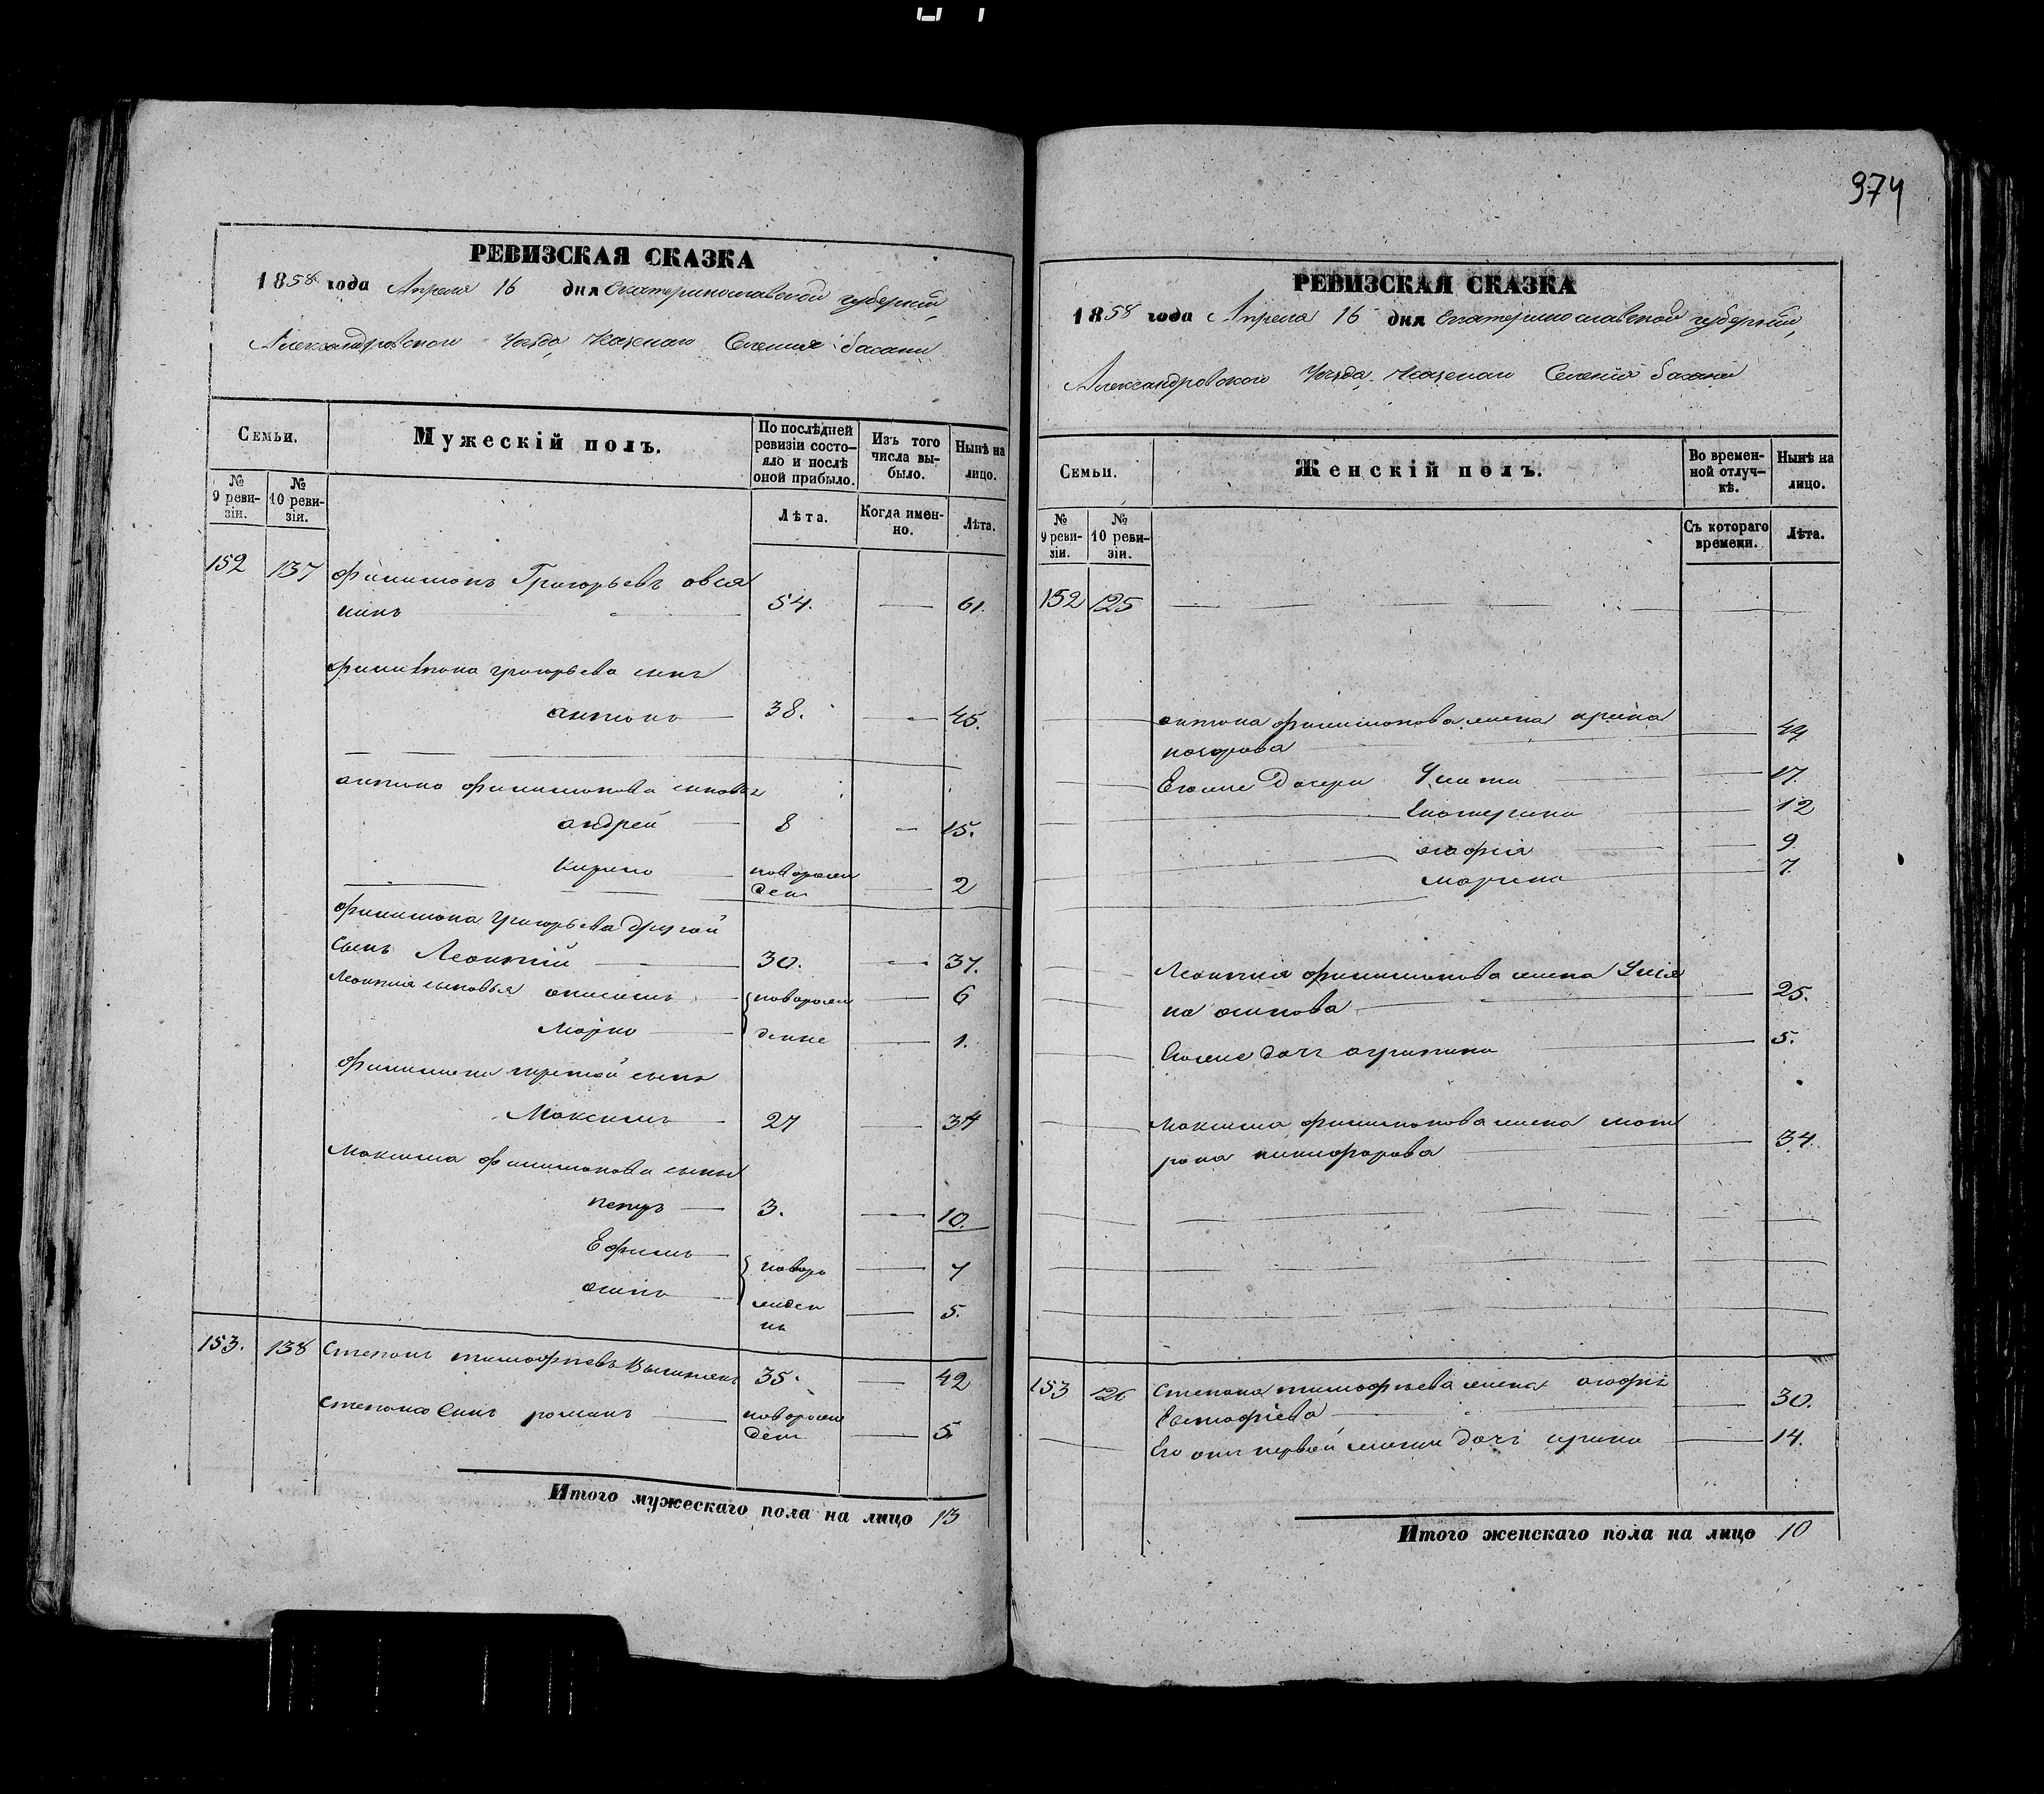 374
РЕВИЗСКАЯ СКАЗКА
1858 года Апреля 16 дня Екатеринославской губернии,
Александровского Уезда, Казенаго Селения басани
Семьи.
Мужескій полъ.
По послѣдней ревизіи состояло и послѣ оной прибыло.
Изъ того числа выбыло.
Нынѣ на лицо.
№ 9 ревизіи.
№ 10 ревизіи.
Лѣта.
Когда именно.
Лѣта.
152 137 филимонъ Григорьевъ овся
нинъ 54. 61.
филимона григорьева сынъ
антонъ 38. 45.
антона филимонова сыновья
андрей 8 15.
новорожден 2
филимона григорьева другой
сынъ Леонтий 30. 37.
Леонтия сыновья новорож 6
Марко денне 1.
филимона третой сынъ
Максимъ 27 34
максима филимонова сыны
петръ 3. 10.
Ефимъ новоро 7
осипъ жден 5.
нъ
153. 138 Степанъ тимофиевъ 35. 42
степана Сынъ романъ новорож
ден 5
Итого мужескаго пола на лицо 13
РЕВИЗСКАЯ СКАЗКА
1858 года Апреля 16 дня Екатеринославской губернии,
Александровского Уезда, Казенаго Селения басани
Семьи.
Женскій полъ.
Во временной отлучкѣ.
Нынѣ на лицо.
№ 9 ревизіи.
№ 10 ревизіи.
Съ котораго времени.
Лѣта.
152 125
антона филимонова жена ирина
44
Егоже Дочери 17.
Екатерина 12
агафія 9
марина 7.
Леонтия филимонова жена Улия
на осипова 25.
Егоже дочь агрипина 5.
максима филимонова жена мат
рона никифорова 34.
153 126 Степана тимофиева жена агафія
Евстафіева 30.
Его отъ первой жены дочь ирина 14.
Итого женскаго пола на лицо 10